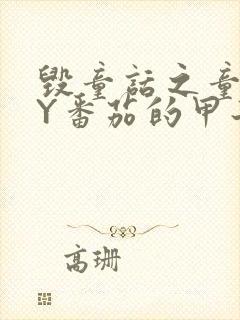 毁童话之童
Y番茄的甲
高珊